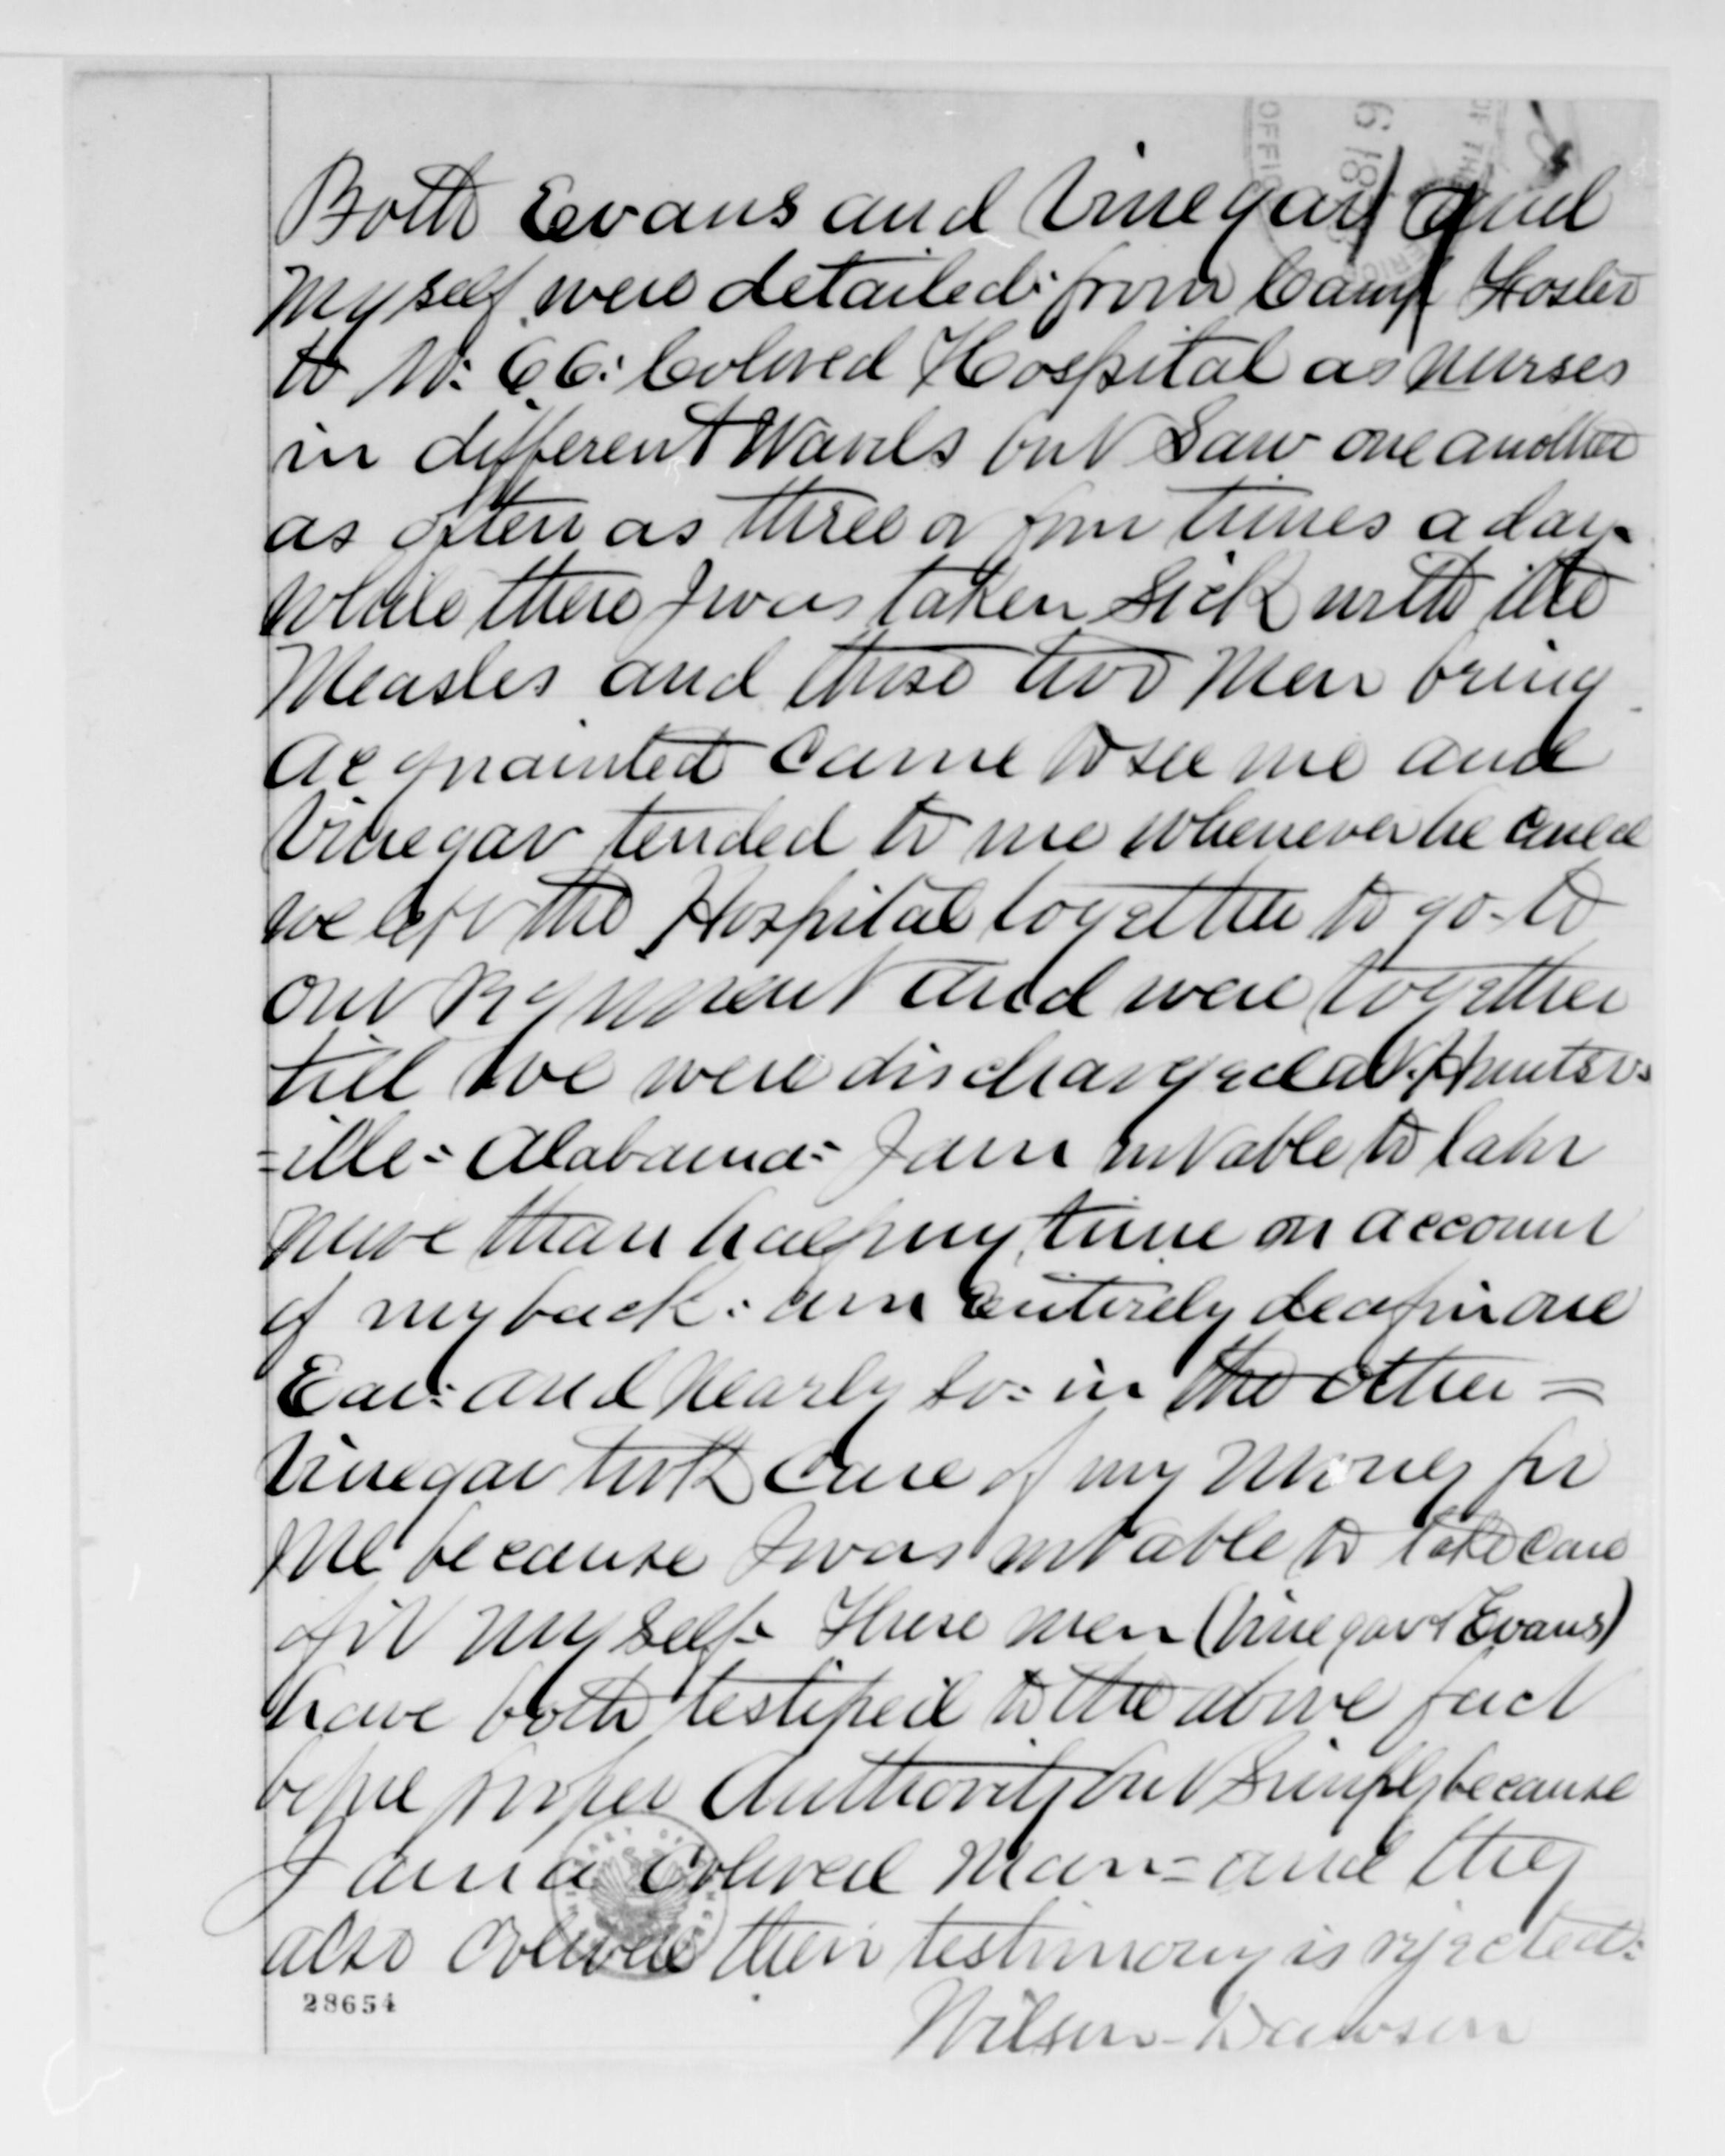 Both Evans and Vinegar and
Myself were detailed from Camp Foster
to No: 66: Colored Hospital as nurses
in different Wards but Saw one another
as often as three or four times a day-
While there I was taken Sick with the
Measles and these two Men being
Acquainted Came to see me and
Vinegar tended to me whenever he could
we left the Hospital together to go-to
our Regiment and were together
till we were discharged at Huntsv-
-ille- Alabama- I am not able to labor
More than half my time on account
of my back: am Entirely deaf in one
Ear: and Nearly so: in the other-
Vinegar took Care of my Money for
Me because I was not able to take care
of it Myself- These men (Vinegar & Evans)
have both testified to the above fact
before proper Authority but Simply because
I am a Colored Man- and they
also Colored their testimony is rejected:
Wilson- Dawson
28654